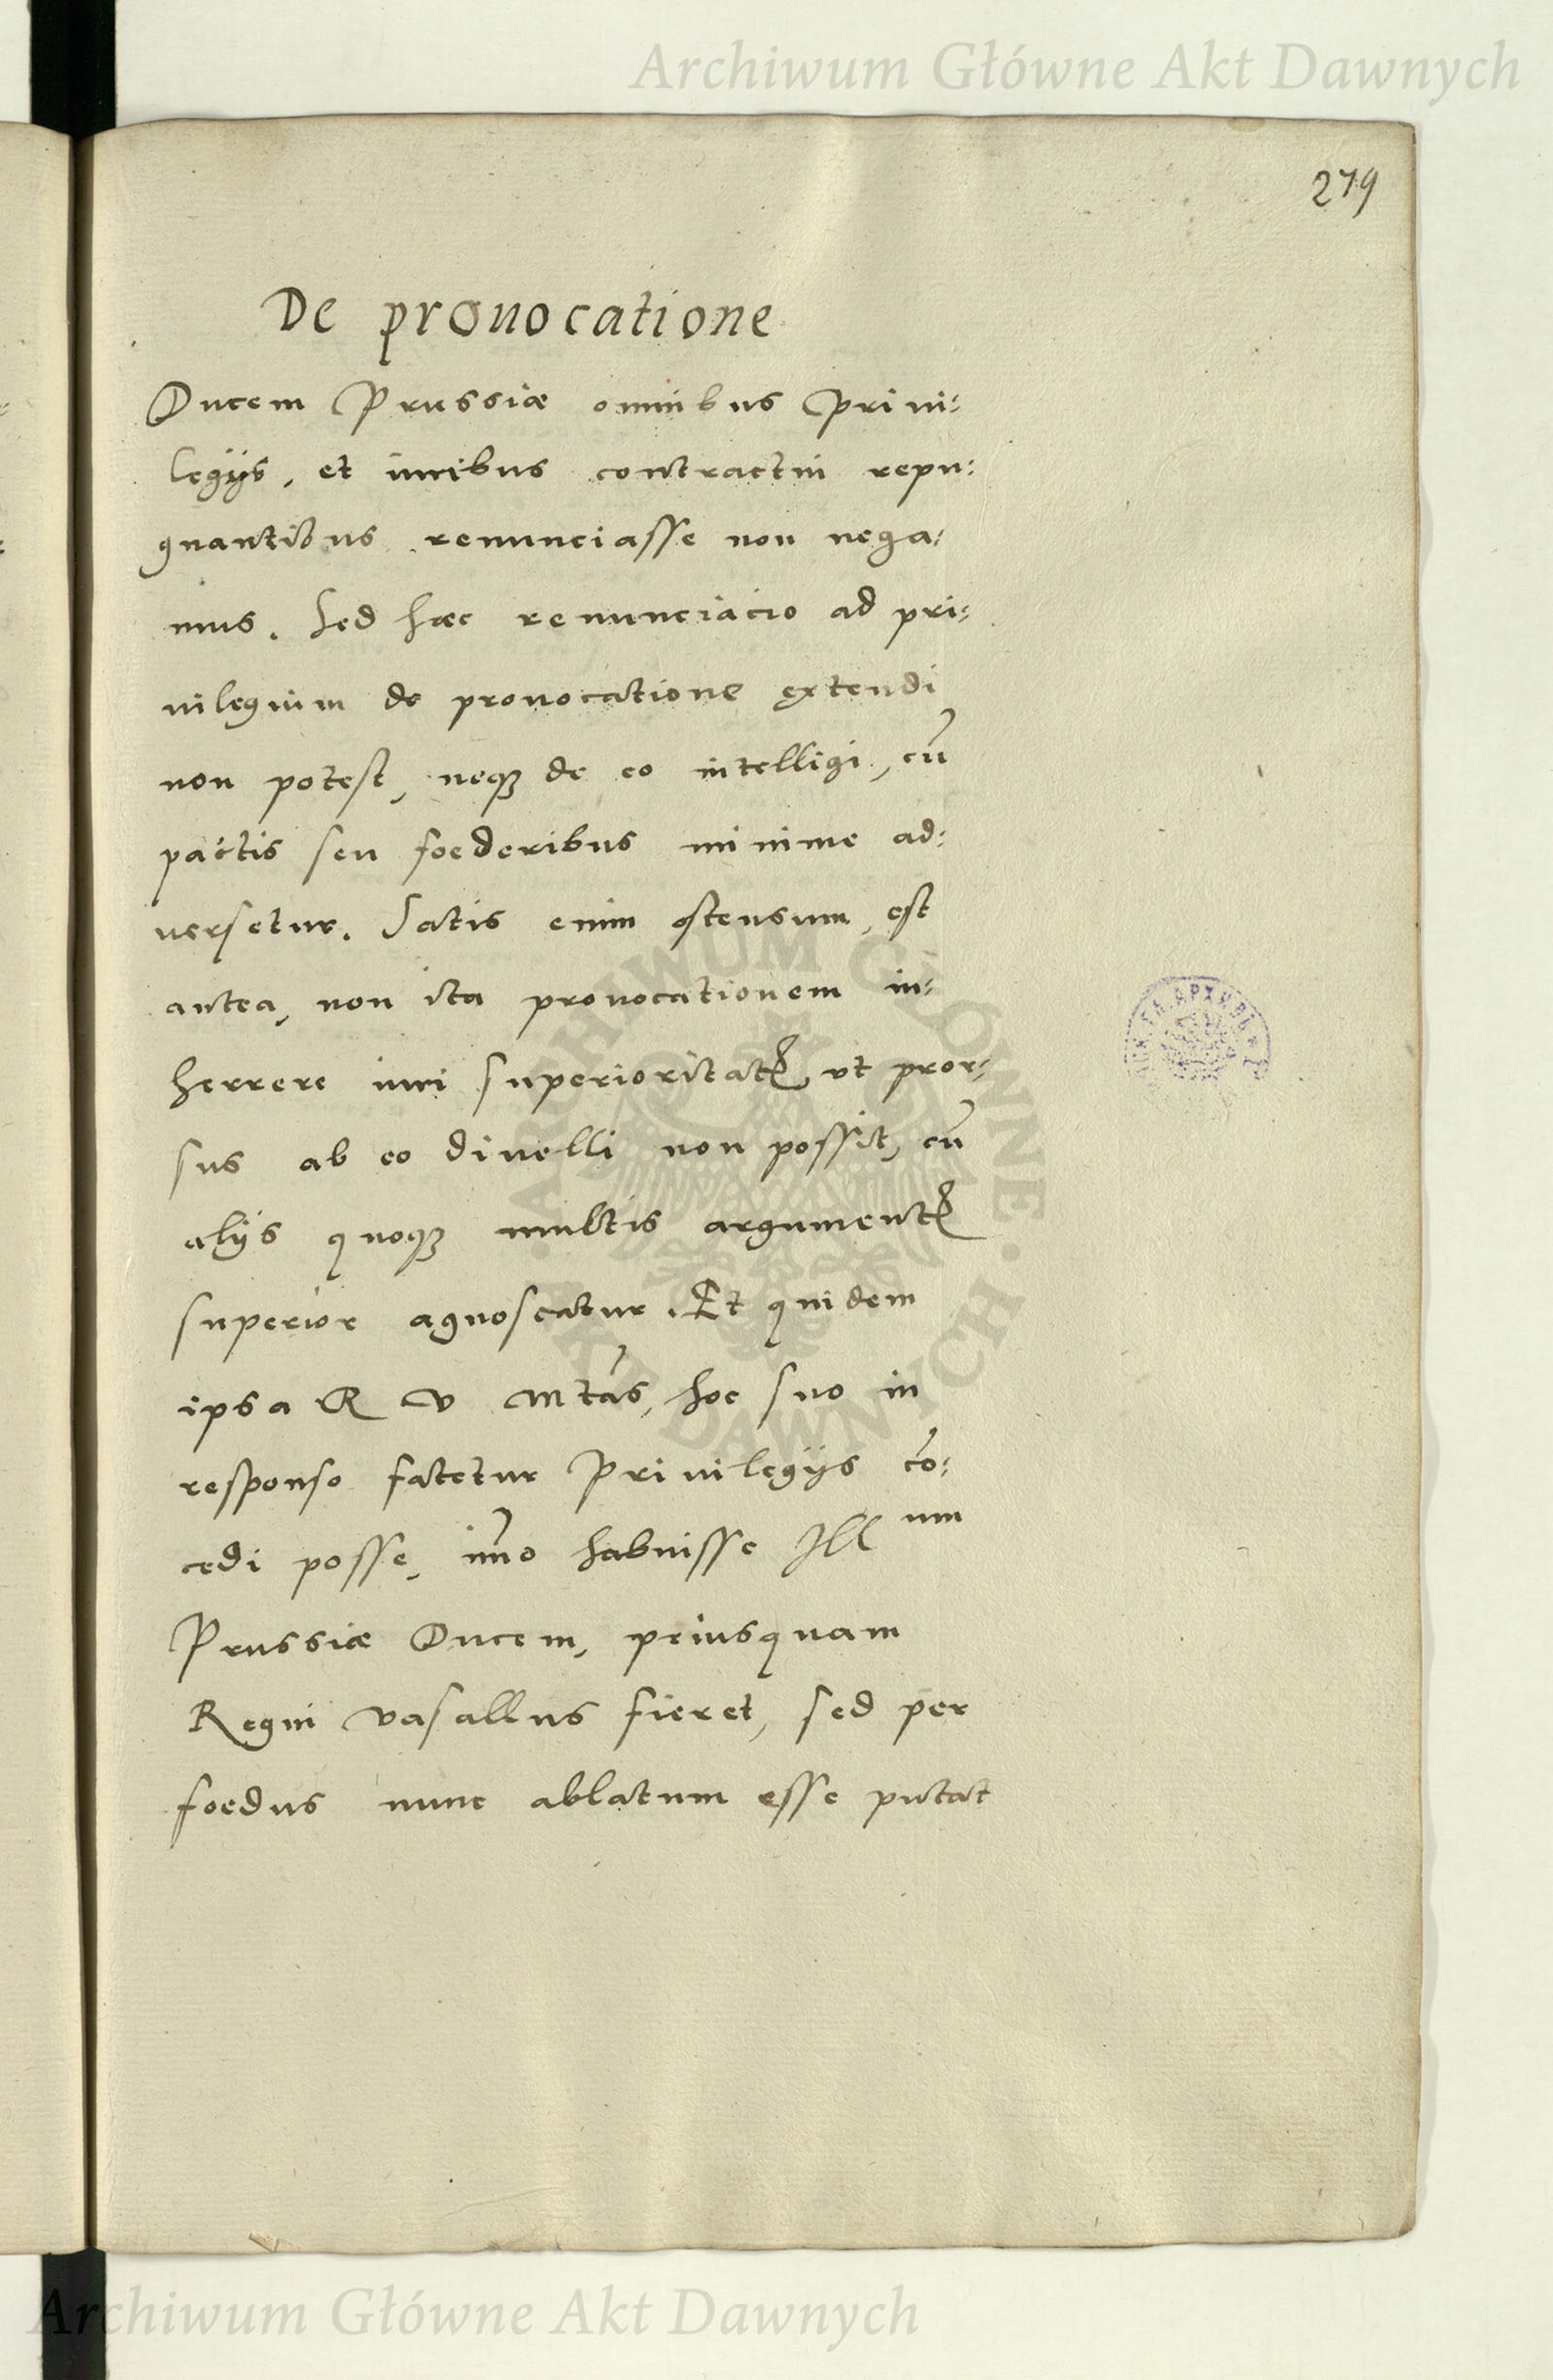 Archiwum Główne Akt Dawnych
279
De prouocatione
Ducem Prussiæ omnibus Priui⸗
legijs, et iuribus contractui repu⸗
gnantibus renunciasse non nega⸗
mus. Sed hæc renunciacio ad pri⸗
uilegium de prouocatione extendi
non potest, neqȝ de eo intelligi, cũ
pactis seu foederibus minime ad⸗
uersetur. Satis enim ostensum est
antea, non ita prouocationem in⸗
herrere iuri superioritatꝭ, vt pror⸗
sus ab eo diuelli non possit, cũ
alijs quoqȝ multis argumentꝭ
superior agnoscatur. Et quidem
ipsa R V Mtas, hoc suo in
responso fatetur Priuilegijs cõ⸗
cedi posse, im̃o habuisse Ill um
Prussiæ Ducem, priusquam
Regni vasallus fieret, sed per
foedus nunc ablatum esse putat
ARCHIWUM GŁÓWNE AKT DAWNYCH
Archiwum Główne Akt Dawnych